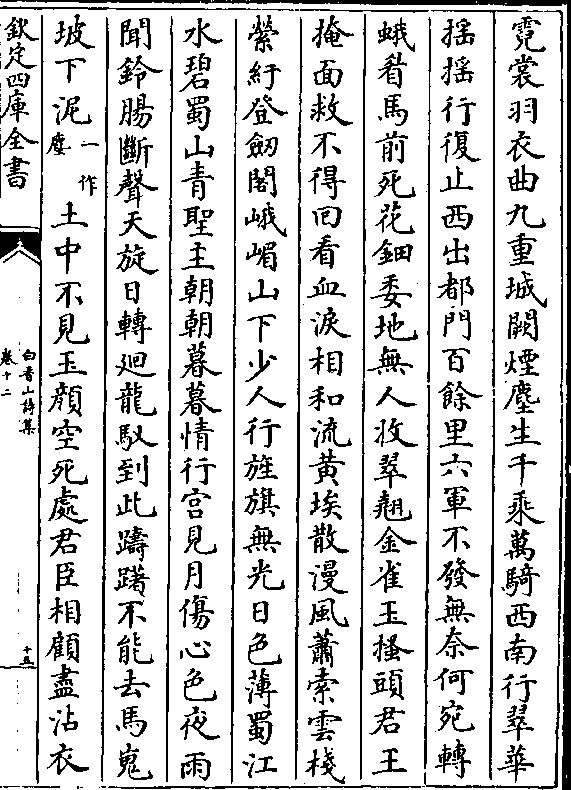 霓裳羽衣曲九重城闕煙塵生千乘萬騎西南行翠華
揺揺行復止西出都門百餘里六軍不發無奈何宛轉
蛾眉馬前死花鈿委地無人收翠翹金雀玉搔頭君王
掩面救不得回看血淚相和流黄埃散漫風蕭索雲棧
縈紆登劒閣峨嵋山下少人行旌旗無光日色薄蜀江
水碧蜀山青聖主朝朝暮暮情行宫見月傷心色夜雨
聞鈴腸斷聲天旋日轉廻龍馭到此躊躇不能去馬嵬
坡下泥一作塵土中不見玉顔空死處君臣相顧盡沾衣
欽定四庫全書
白香山詩集
卷十二
十五